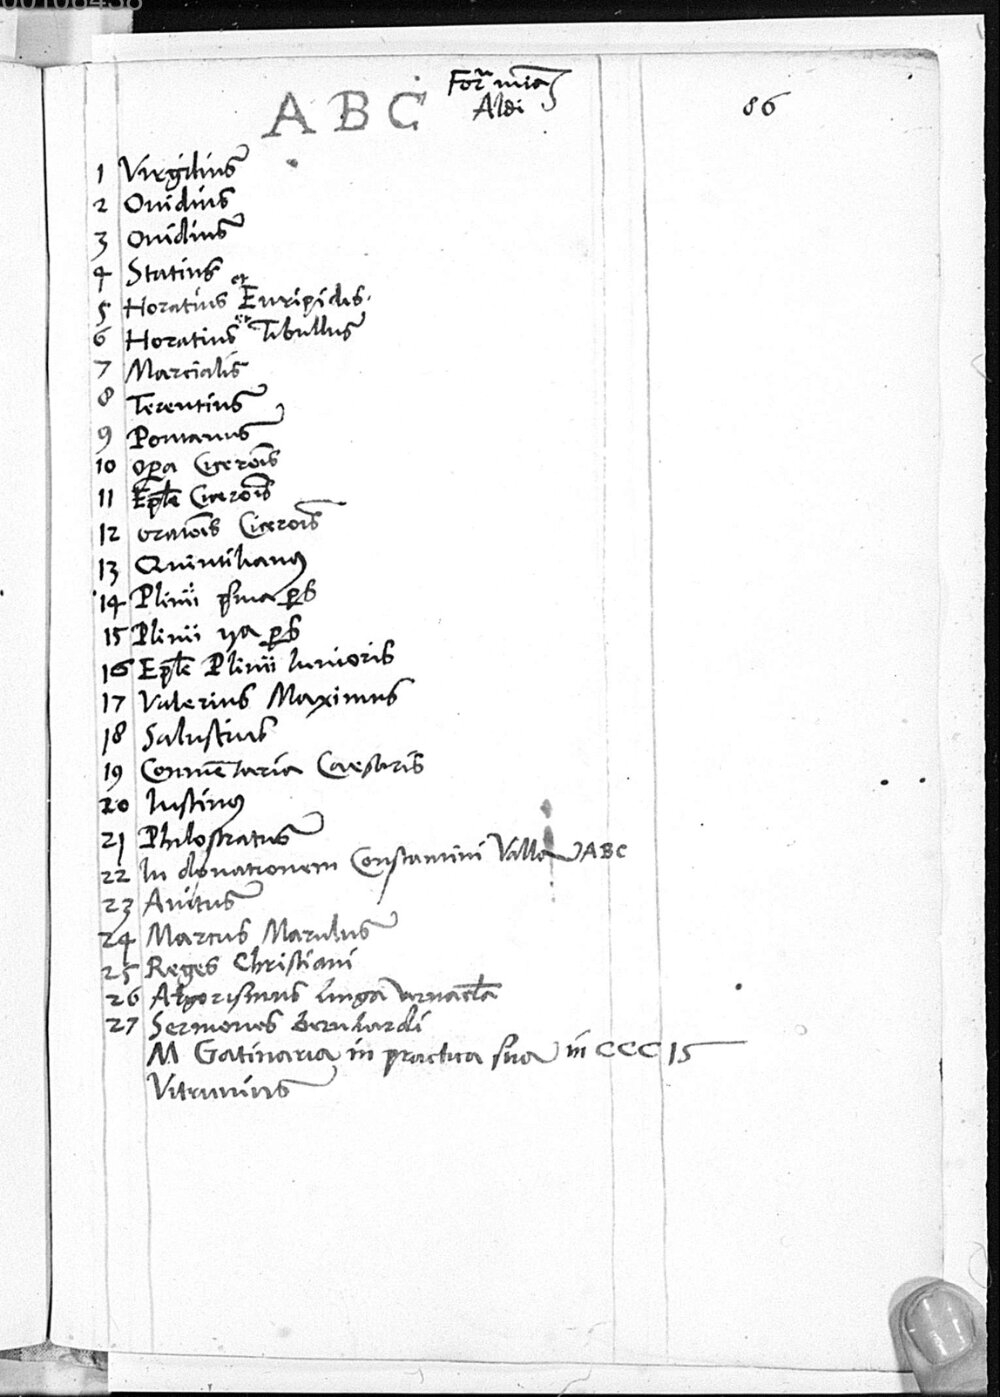 00108438
ABC
For̃ mia
Aldi
86
1 Virgilius
2 Ouidius
3 Ouidius
4 Statius
5 Horatius et Euripides.
6 Horatius et Tibullus
7 Marcialis
8 Terentius
9 Pontanus
10 opa Cicerõis
11 Eple Cicerõis
12 oratõis Cicerõis
13 Quintilianus
14 Plinii pma ps
15 Plinii ija ps
16 Eple Plinii Iunioris
17 Valerius Maximus
18 Salustius
19 Commẽtaria Caesaris
20 Iustinus
21 Philostratus
22 In donationem Constantini Valla ABC
23 Auitus
24 Marcus Marulus
25 Reges Christiani
26 Algorismus linga vernacla
27 Sermones bernhardi
M Gatinaria in practica sua in CCC 15
Vitruuius